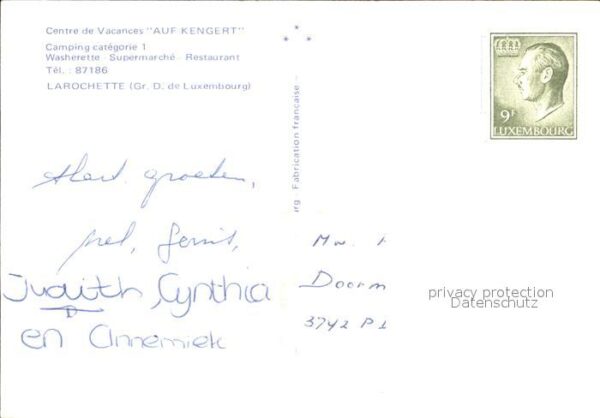 Centre de Vacances "AUF KENGERT"
Camping catégorie 1
Washerette - Supermarché - Restaurant
Tél. : 87186
LAROCHETTE (Gr. D. de Luxembourg)
rg - Fabrication française -
9F
LUXEMBOURG
Hart. groeten,
Gerrit,
Judith, Cynthia
en Annemiek
Mw.
Doorn
3742 P
privacy protection
Datenschutz